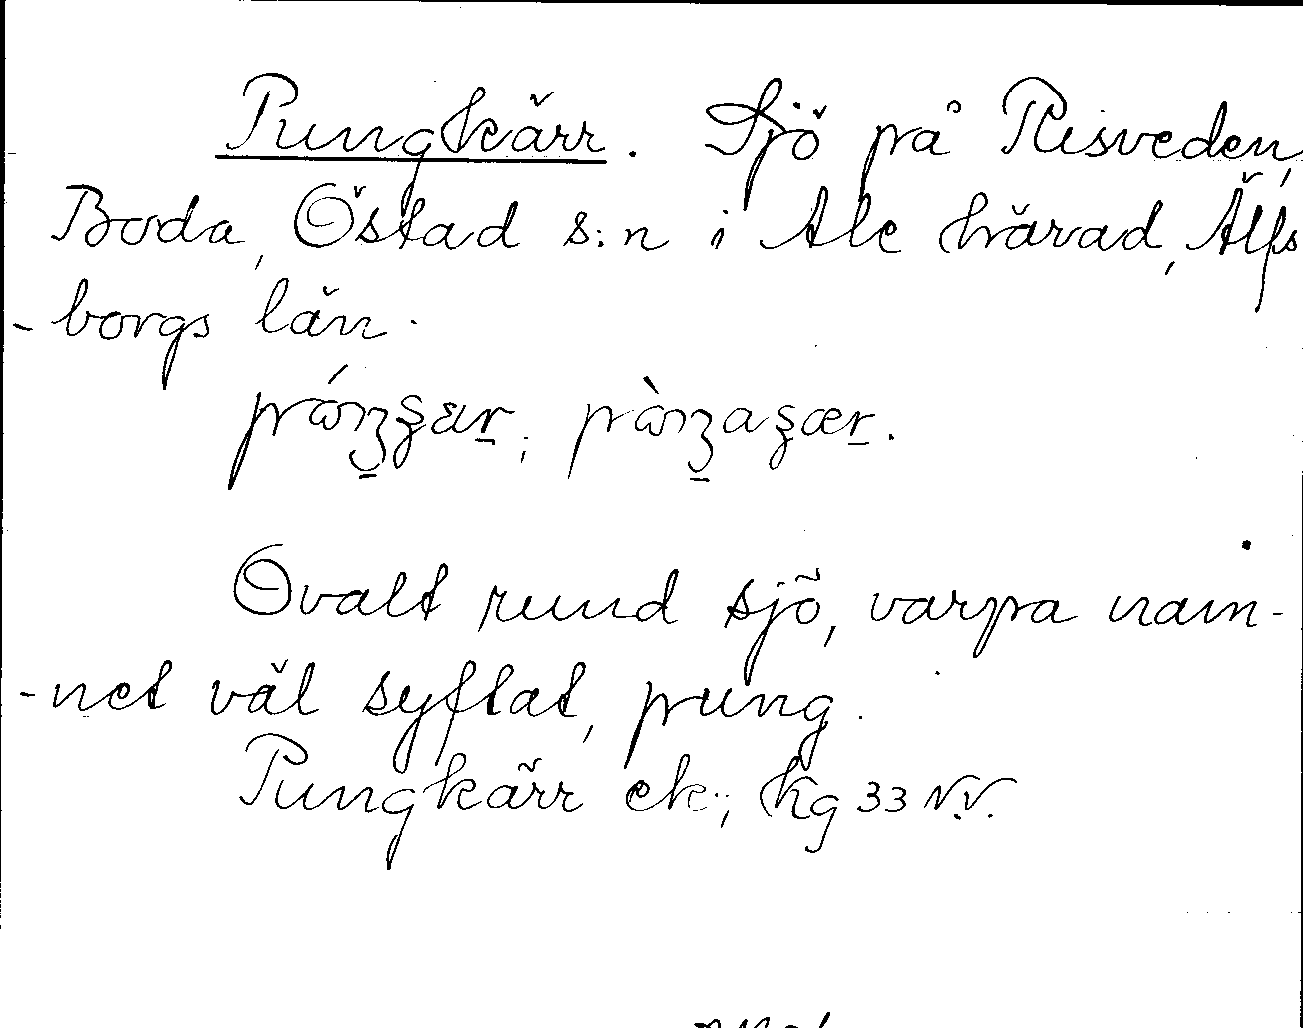 Pungkärr. Sjö på Risveden,
Boda, Östad s:n i Ale härad, Älfs
-borgs län.
Ovalt rund sjö, varpa nam-
-net väl syftat, pung.
Pungkärr ek.; kg 33 N.V.